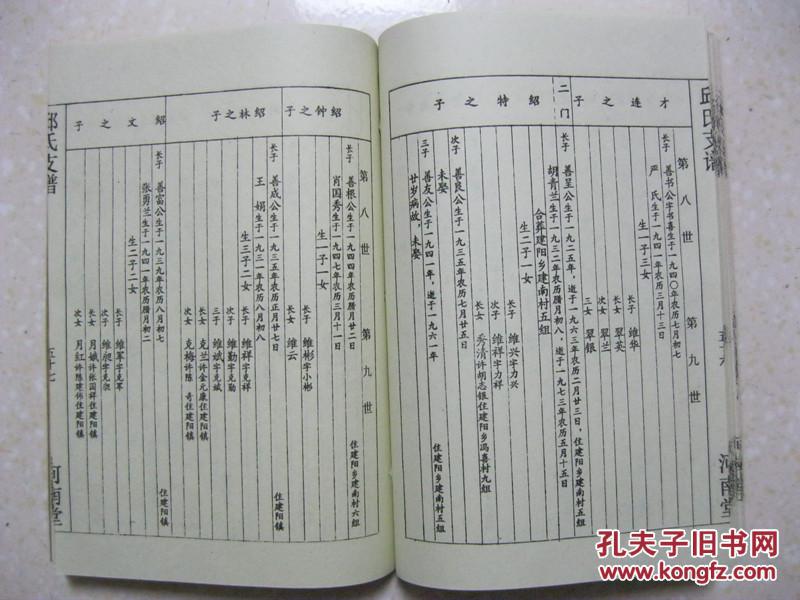 邱氏支谱
河南堂
才连之子
第八世
第九世
长子 善书公字书喜生于一九四〇年农历七月初七
严氏生于一九四一年农历三月十三日
生一子三女
长子 维华
长女 翠英
次女 翠兰
三女 翠银
二门
绍特之子
长子 善呈公生于一九二五年,逝于一九六三年农历二月廿三日,住建阳乡建南村五组
胡青兰生于一九三二年农历腊月初八,逝于一九七三年农历五月十五日
合葬建阳乡建南村五组
生二子一女
长子 维兴字力兴
次子 维祥字力祥
长女 秀清许胡志银住建阳乡冯喜村九组
次子 善良公生于一九三五年农历七月廿五日
未娶
住建阳乡建南村五组
三子 善友公生于一九四一年,逝于一九六一年
廿岁病故,未娶
绍钟之子
第八世
第九世
长子 善根公生于一九四四年农历腊月廿二日
住建阳乡建南村六组
肖国秀生于一九四七年农历三月十一日
生一子一女
长子 维彬字小彬
长女 维云
绍林之子
长子 善成公生于一九三五年农历正月廿七日
住建阳镇
王娟生于一九三一年农历八月初八
生三子二女
长子 维祥字克祥
次子 维勤字克勤
三子 维斌字克斌
长女 克兰许金元康住建阳镇
次女 克梅许陈奇住建阳镇
绍文之子
长子 善富公生于一九三九年农历八月初七
住建阳镇
张勇兰生于一九四一年农历腊月初二
生二子二女
长子 维军字克军
次子 维昶字克
长女 月娥许张国祥住建阳镇
次女 月红许陈建伟住建阳镇
邱氏支谱
五十七
河南堂
孔夫子旧书网
www.kongfz.com